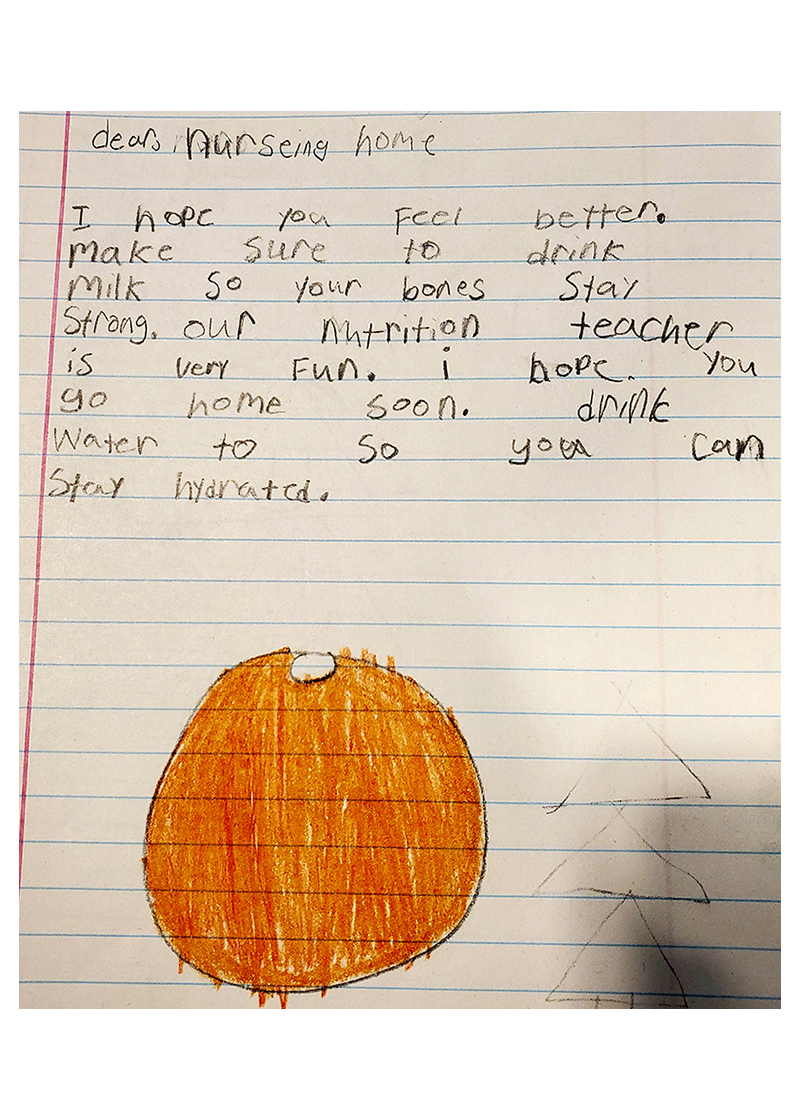 dears nurseing home
I hope you Feel better.
make sure to drink
Milk so your bones Stay
Strong. our nutrition teacher
is very Fun. i hope. you
go home soon. drink
Water to so you can
Stay hydrated.